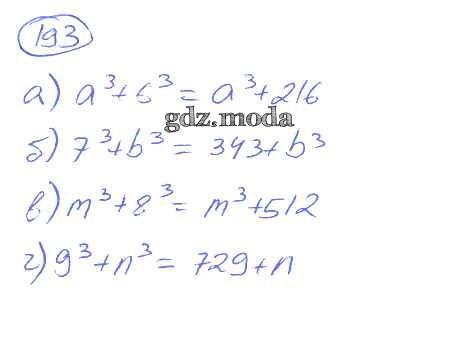 193
а) a³+6³= a³+216
gdz.moda
б) 7³+b³= 343+b³
в) m³+8³= m³+512
г) 9³+n³= 729+n